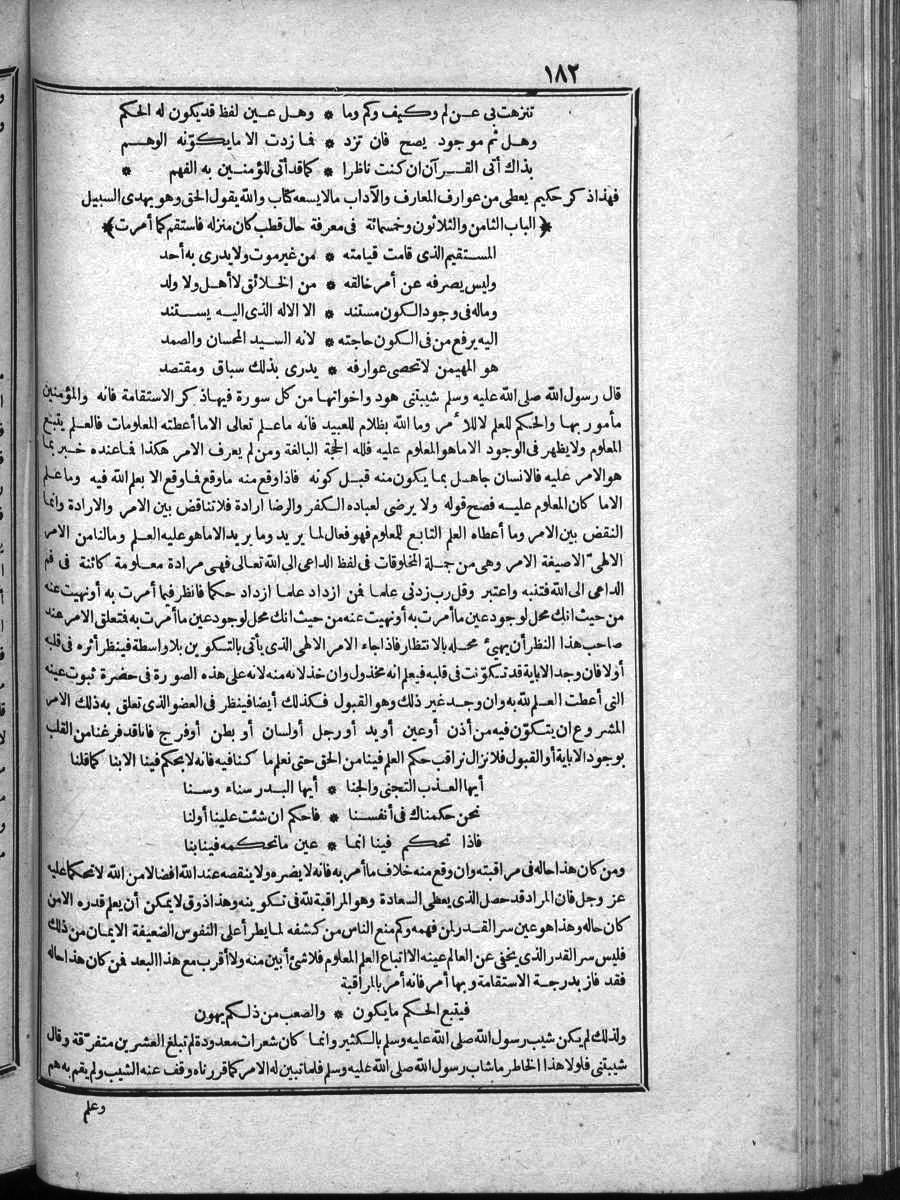 ١٨٢
تنزهت بى عن لم وكيف وكم وما * وهل عين لفظ قد يكون له الحكم
وهل ثم موجود يصح فان تزد * فما زدت الا ما يكوّنه الوهم
بذاك أتى القرآن ان كنت ناظرا * كما قد أتى للؤمنين به الفهم *
فهذا ذكر حكيم يعطى من عوارف المعارف والآداب ما لا يسعه كتاب والله يقول الحق وهو يهدى السبيل
﴿الباب الثامن والثلاثون وخمسمائة فى معرفة حال قطب كان منزله فاستقم كما أمرت﴾
المستقيم الذى قامت قيامته * من غير موت ولا يدرى به أحد
وليس يصرفه عن أمر خالقه * من الخلائق لا أهل ولا ولد
وماله فى وجود الكون مستند * الا الاله الذى اليه يستند
اليه يرفع من فى الكون حاجته * لانه السيد المحسان والصمد
هو المهيمن لا تحصى عوارفه * يدرى بذلك سباق ومقتصد
قال رسول الله صلى الله عليه وسلم شيبتنى هود واخواتها من كل سورة فيها ذكر الاستقامة فانه والمؤمنين
مأمور بها والحكم للعلم لا للأمر وما الله بظلام للعبيد فانه ما علم تعالى الا ما أعطته المعلومات فالعلم يتبع
المعلوم ولا يظهر فى الوجود الا ما هو المعلوم عليه فلله الحجة البالغة ومن لم يعرف الامر هكذا فما عنده خبر بما
هو الامر عليه فالانسان جاهل بما يكون منه قبل كونه فاذا وقع منه ما وقع فما وقع الا بعلم الله فيه وما علم
الا ما كان المعلوم عليه فصح قوله ولا يرضى لعباده الكفر والرضا ارادة فلا تناقض بين الامر والارادة وانما
النقض بين الامر وما أعطاه العلم التابع للمعلوم فهو فعال لما يريد وما يريد الا ما هو عليه العلم وما لنا من الامر
الالهىّ الا صيغة الامر وهى من جملة المخلوقات فى لفظ الداعى الى الله تعالى فهى مرادة معلومة كائنة فى فم
الداعى الى الله فتنبه واعتبر وقل رب زدنى علما فمن ازداد علما ازداد حكما فانظر فيما أمرت به أو نهيت عنه
من حيث انك محل لوجود عين ما أمرت به أو نهيت عنه من حيث انك محل لوجود عين ما أمرت به فتعلق الامر عند
صاحب هذا النظر أن يهيئ محله بالانتظار فاذا جاء الامر الالهى الذى يأتى بالتكوين بلا واسطة فينظر أثره فى قلبه
أولا فان وجد الاباية قد تكوّنت فى قلبه فيعلم انه مخذول وان خذلانه منه لانه على هذه الصورة فى حضرة ثبوت عينه
التى أعطت العلم لله به وان وجد غير ذلك وهو القبول فكذلك أيضا فينظر فى العضو الذى تعلق به ذلك الامر
المشروع ان يتكوّن فيه من أذن أو عين أو يد أو رجل أو لسان أو بطن أو فرج فانا قد فرغنا من القلب
بوجود الاباية أو القبول فلا نزال نراقب حكم العلم فينا من الحق حتى نعلم ما كنا فيه فانه لا يحكم فينا الا بنا كما قلنا
أيها العذب التجنى والجنا * أيها البدر سناء وسنا
نحن حكمناك فى أنفسنا * فاحكم ان شئت علينا أو لنا
فاذا تحكم فينا انما * عين ما تحكمه فينا بنا
ومن كان هذا حاله فى مراقبته وان وقع منه خلاف ما أمر به فانه لا يضره ولا ينقصه عند الله افضالا من الله لا تحكما عليه
عز وجل فان المراد قد حصل الذى يعطى السعادة وهو المراقبة لله فى تكوينه وهذا ذوق لا يمكن أن يعلم قدره الا من
كان حاله وهذا هو عين سر القدر لمن فهمه وكم منع الناس من كشفه لما يطرأ على النفوس الضعيفة الايمان من ذلك
فليس سر القدر الذى يخفى عن العالم عينه الا اتباع العلم المعلوم فلا شئ أبين منه ولا أقرب مع هذا البعد فمن كان هذا حاله
فقد فاز بدرجة الاستقامة وبها أمر فانه أمر بالمراقبة
فيتبع الحكم ما يكون * والصعب من ذلكم يهون
ولذلك لم يكن شيب رسول الله صلى الله عليه وسلم بالكثير وانما كان شعرات معدودة لم تبلغ العشرين متفرّقة وقال
شيبتنى فلولا هذا الخاطر ما شاب رسول الله صلى الله عليه وسلم فلما تبين له الامر كما قررناه وقف عنه الشيب ولم يقم به هم
وعلم